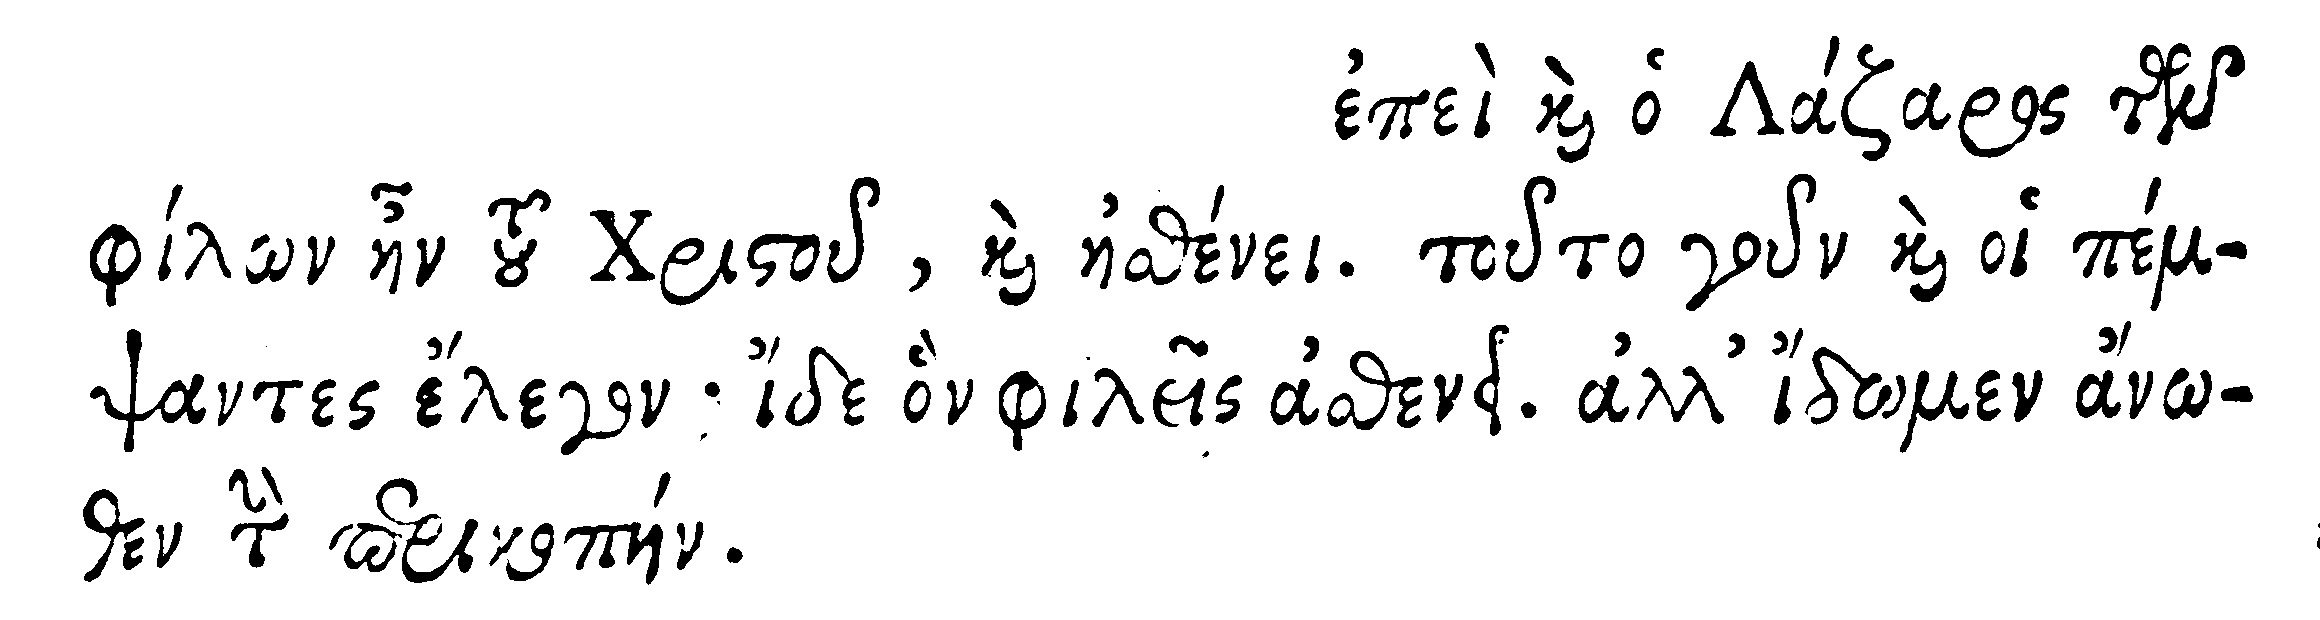 ἐπεὶ καὶ ὁ Λάζαρος τῶν
φίλων ἦν τοῦ Χριστοῦ, καὶ ἠσθένει. τοῦτο γοῦν καὶ οἱ πέμ-
ψαντες ἔλεγον· ἴδε ὃν φιλεῖς ἀσθενεῖ. ἀλλ’ ἴδωμεν ἄνω-
θεν τὴν περικοπήν.